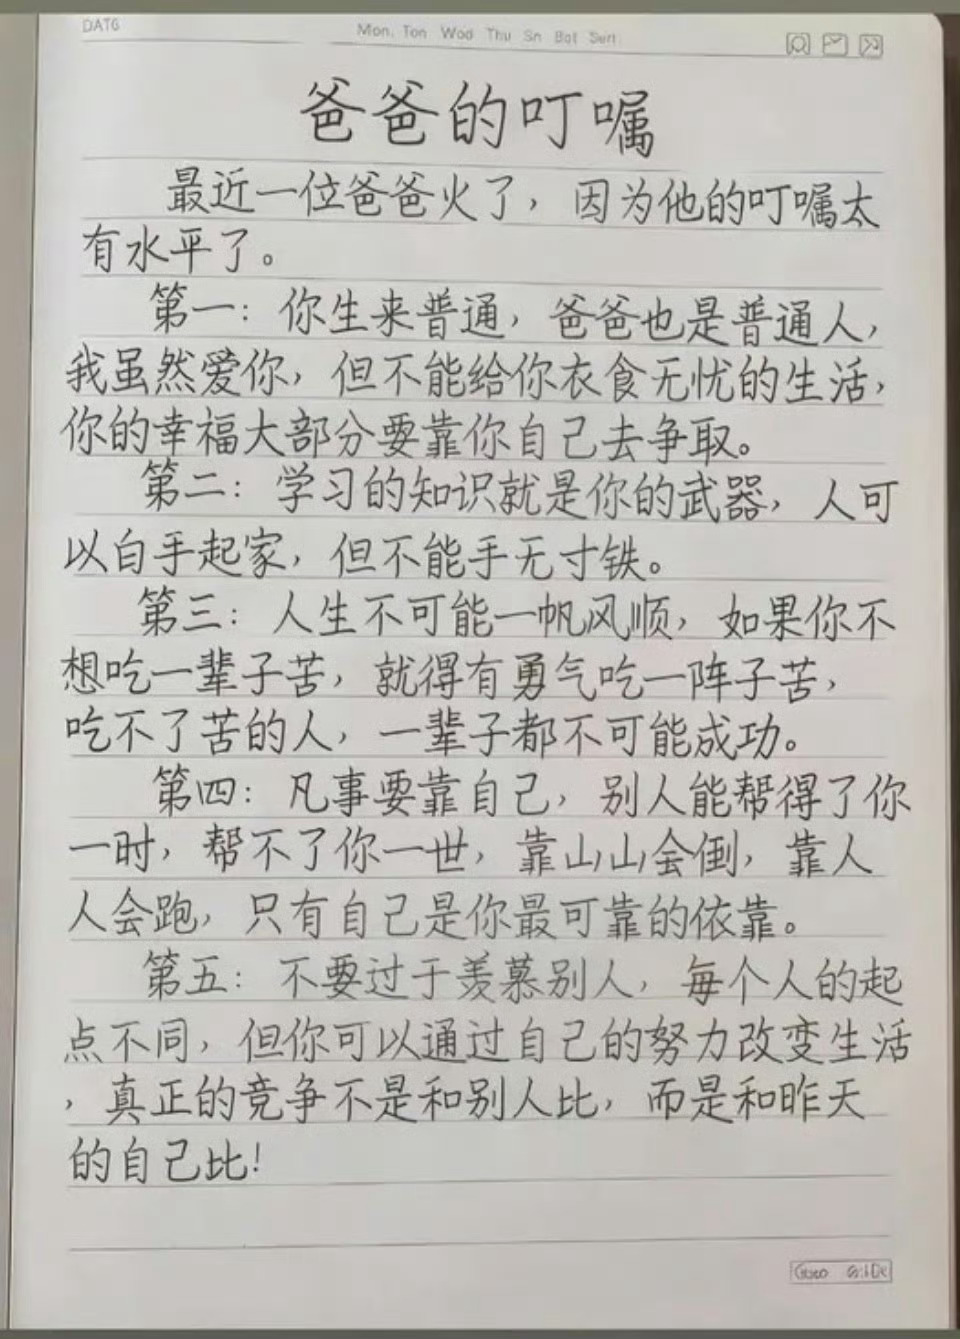 DAT6
Mon. Ton Wod Thu Sn Bat Sert
爸爸的叮嘱
最近一位爸爸火了，因为他的叮嘱太
有水平了。
第一：你生来普通，爸爸也是普通人，
我虽然爱你，但不能给你衣食无忧的生活，
你的幸福大部分要靠你自己去争取。
第二：学习的知识就是你的武器，人可
以白手起家，但不能手无寸铁。
第三：人生不可能一帆风顺，如果你不
想吃一辈子苦，就得有勇气吃一阵子苦，
吃不了苦的人，一辈子都不可能成功。
第四：凡事要靠自己，别人能帮得了你
一时，帮不了你一世，靠山山会倒，靠人
人会跑，只有自己是你最可靠的依靠。
第五：不要过于羡慕别人，每个人的起
点不同，但你可以通过自己的努力改变生活
，真正的竞争不是和别人比，而是和昨天
的自己比！